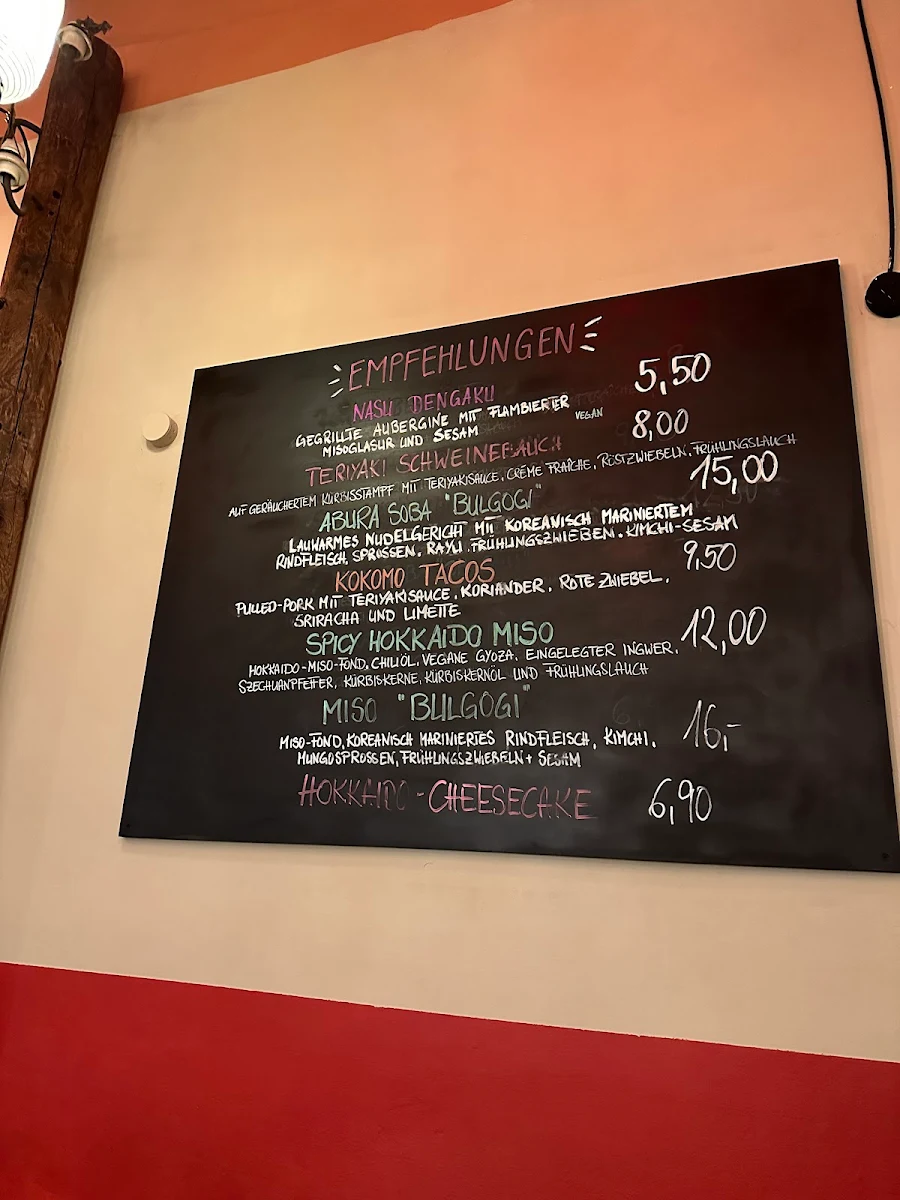 EMPFEHLUNGEN
NASU DENGAKU 5,50
GEGRILLTE AUBERGINE MIT FLAMBIERTER VEGAN
MISOGLASUR UND SESAM
TERIYAKI SCHWEINEBAUCH 8,00
AUF GERÄUCHERTEM KÜRBISSTAMPF MIT TERIYAKISAUCE, CRÈME FRAÎCHE, RÖSTZWIEBELN, FRÜHLINGSLAUCH
ABURA SOBA "BULGOGI" 15,00
LAUWARMES NUDELGERICHT MIT KOREANISCH MARINIERTEM
RINDFLEISCH, SPROSSEN, RAYU, FRÜHLINGSZWIEBEN, KIMCHI-SESAM
KOKOMO TACOS 9,50
PULLED-PORK MIT TERIYAKISAUCE, KORIANDER, ROTE ZWIEBEL,
SRIRACHA UND LIMETTE
SPICY HOKKAIDO MISO 12,00
HOKKAIDO-MISO-FOND, CHILIÖL, VEGANE GYOZA, EINGELEGTER INGWER,
SZECHUANPFEFFER, KÜRBISKERNE, KÜRBISKERNÖL UND FRÜHLINGSLAUCH
MISO "BULGOGI" 16,-
MISO-FOND, KOREANISCH MARINIERTES RINDFLEISCH, KIMCHI,
MUNGOSPROSSEN, FRÜHLINGSZWIEBELN + SESAM
HOKKAIDO-CHEESECAKE 6,90